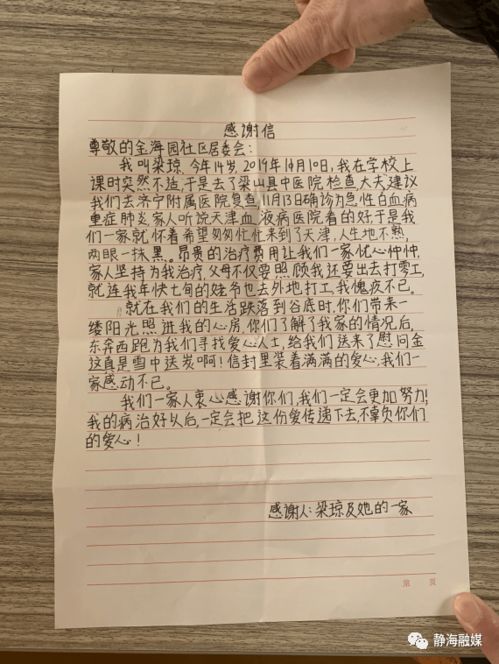 感谢信
尊敬的金海园社区居委会:
我叫梁琼,今年14岁,2019年10月10日,我在学校上
课时突然不适,于是去了梁山县中医院检查,大夫建议
我们去济宁附属医院复查,11月13日确诊为急性白血病
重症肺炎家人听说天津血液病医院看的好于是我
们一家就怀着希望匆匆忙忙来到了天津,人生地不熟,
两眼一抹黑。昂贵的治疗费用让我们一家忧心忡忡,
家人坚持为我治疗,父母不仅要照顾我还要出去打零工,
就连我年快七旬的爷爷也去外地打工,我愧疚不已。
就在我们的生活跌落到谷底时,你们带来一
缕阳光照进我的心房,你们了解了我家的情况后,
东奔西跑为我们寻找爱心人士,给我们送来了慰问金
这真是雪中送炭啊!信封里装着满满的爱心,我们一
家感动不已。
我们一家人衷心感谢你们,我们一定会更加努力!
我的病治好以后,一定会把这份爱传递下去,不辜负你们
的爱心!
感谢人:梁琼及她的一家
第 页
静海融媒